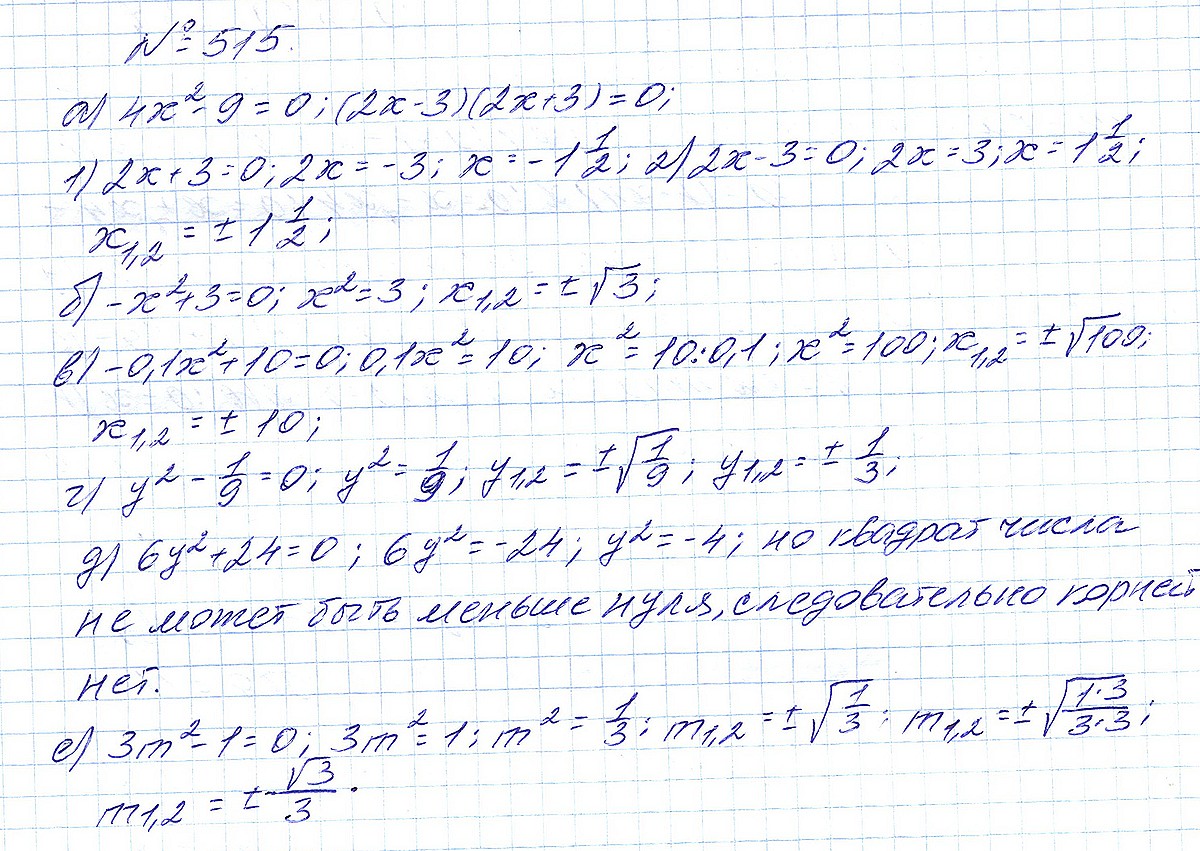 № 515.
а) 4x² - 9 = 0; (2x-3)(2x+3) = 0;
1) 2x+3=0; 2x = -3; x = -1 1/2; 2) 2x-3=0; 2x=3; x = 1 1/2;
x₁,₂ = ± 1 1/2;
б) -x²+3=0; x²=3; x₁,₂ = ±√3;
в) -0,1x²+10=0; 0,1x²=10; x²=10:0,1; x²=100; x₁,₂ = ±√100;
x₁,₂ = ± 10;
г) y² - 1/9 = 0; y² = 1/9; y₁,₂ = ±√(1/9); y₁,₂ = ± 1/3;
д) 6y²+24=0; 6y²=-24; y²=-4; но квадрат числа
не может быть меньше нуля, следовательно корней
нет.
е) 3m²-1=0; 3m²=1; m² = 1/3; m₁,₂ = ±√(1/3); m₁,₂ = ±√(1·3/3·3);
m₁,₂ = ± √3/3.